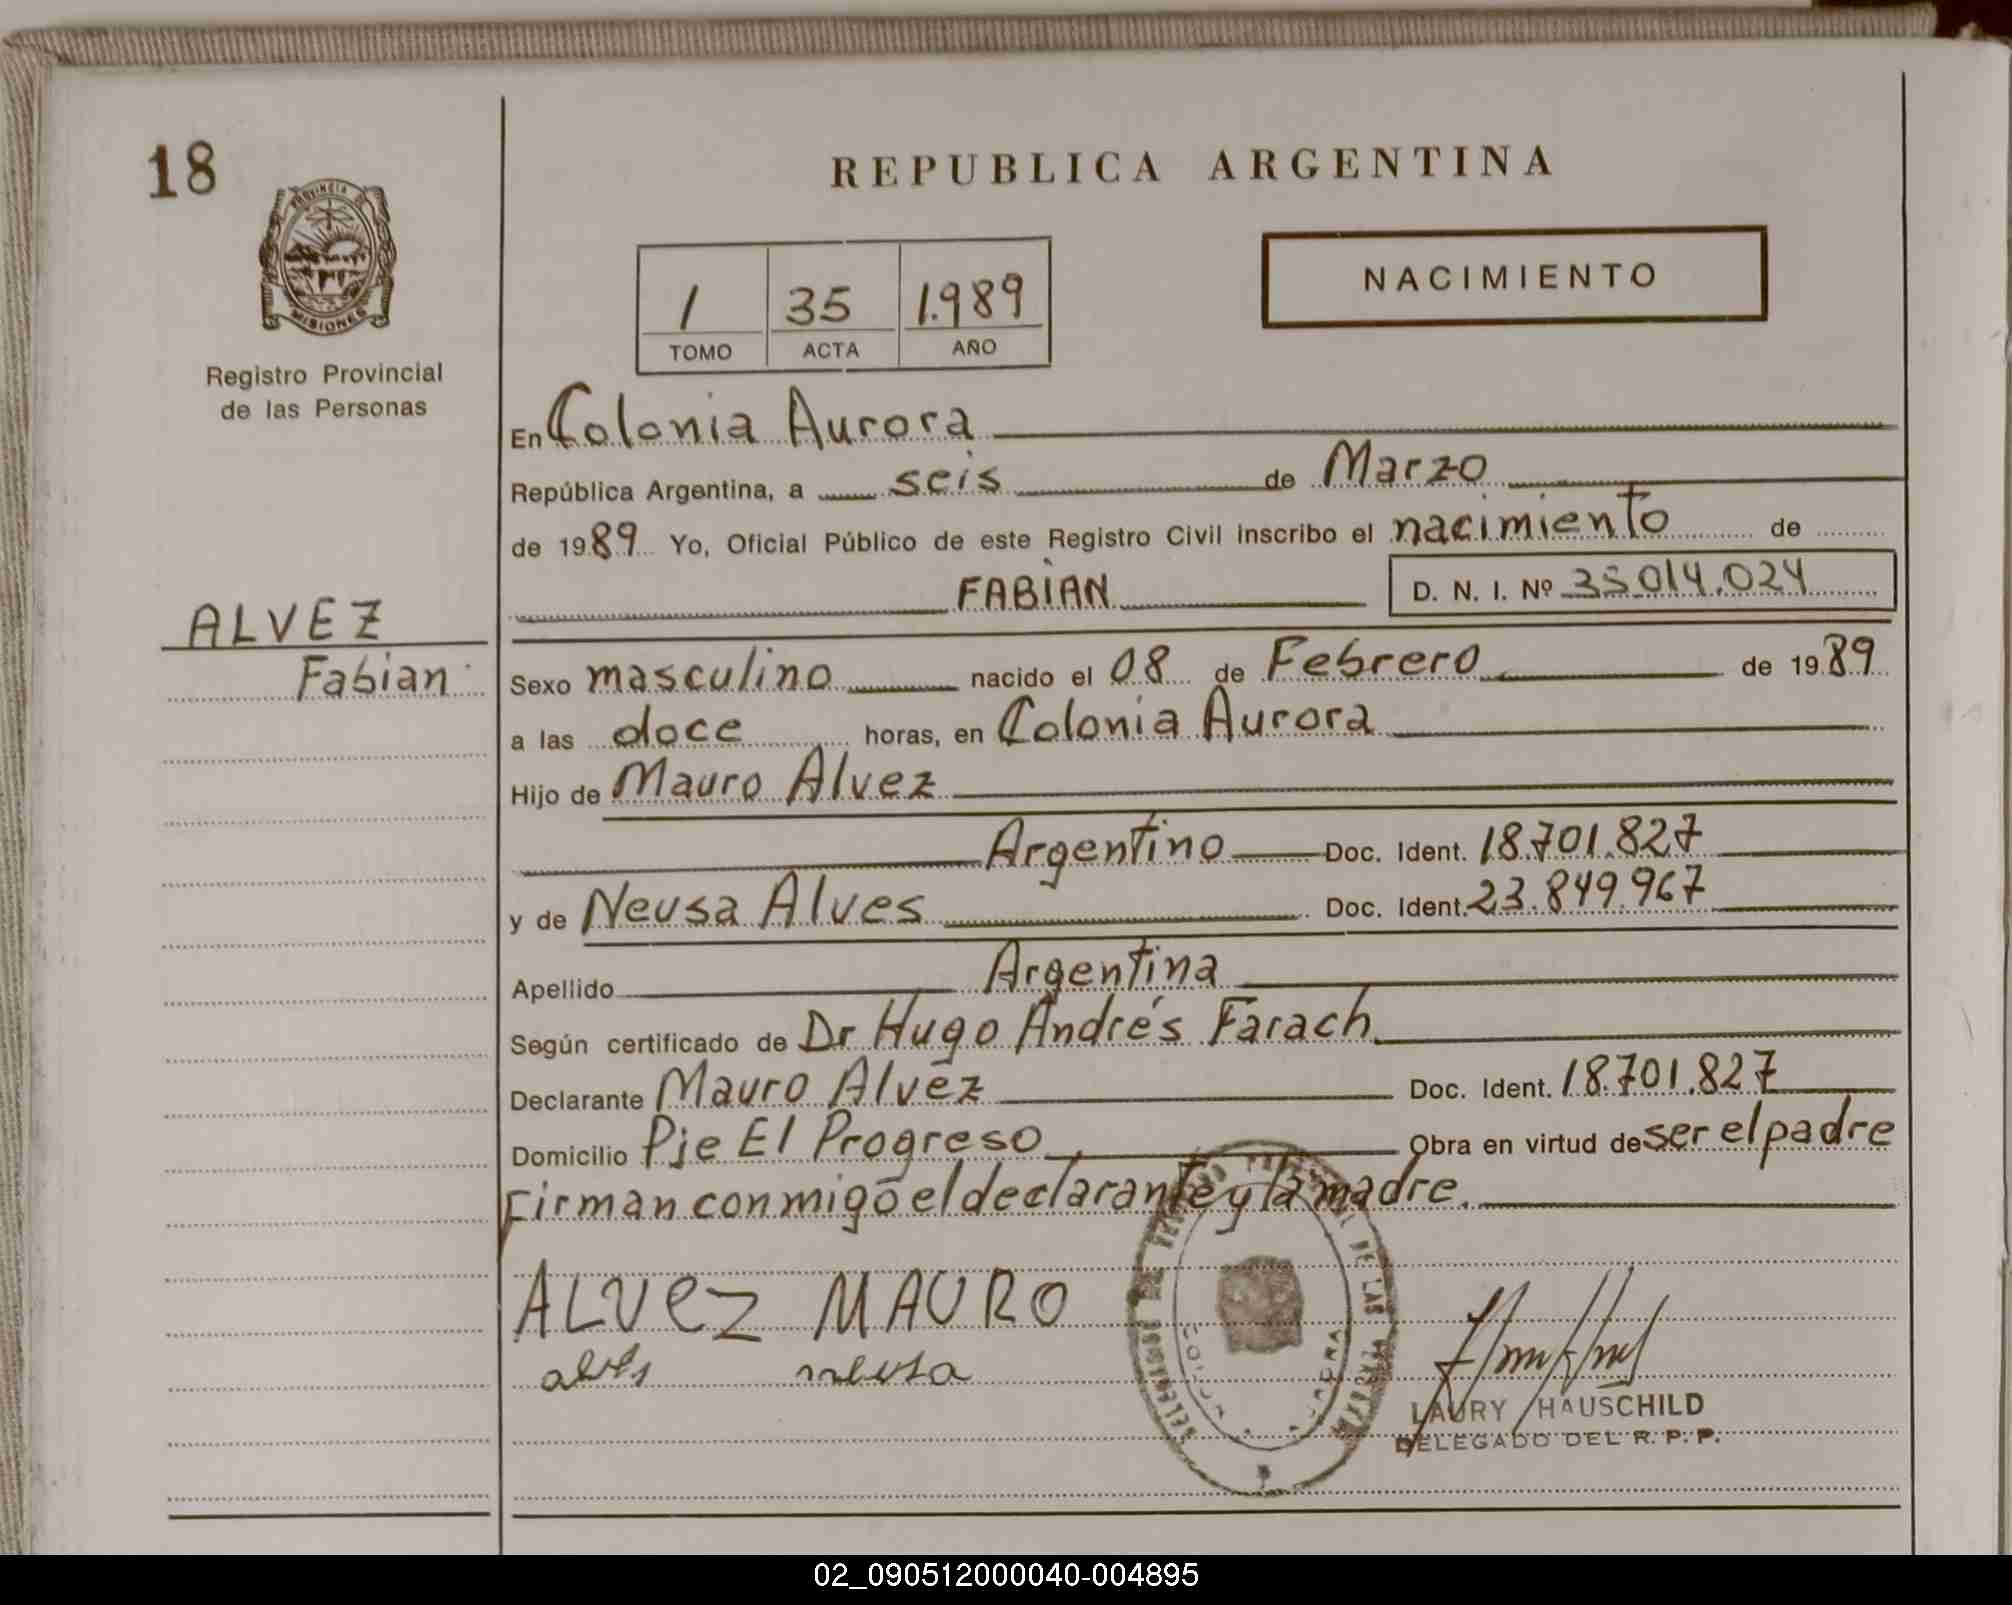 18
REPUBLICA ARGENTINA
PROVINCIA DE
MISIONES
NACIMIENTO
1 35 1.989
TOMO ACTA AÑO
Registro Provincial
de las Personas
En Colonia Aurora
República Argentina, a seis de Marzo
de 1989 Yo, Oficial Público de este Registro Civil inscribo el nacimiento de
FABIAN D. N. I. Nº 35014.024
ALVEZ
Fabian
Sexo masculino nacido el 08 de Febrero de 1989
a las doce horas, en Colonia Aurora
Hijo de Mauro Alvez
Argentino Doc. Ident. 18.701.827
y de Neusa Alves Doc. Ident. 23.849.967
Apellido Argentina
Según certificado de Dr Hugo Andrés Farach
Declarante Mauro Alvez Doc. Ident. 18.701.827
Domicilio Pje El Progreso Obra en virtud de ser el padre
Firman conmigo el declarante y la madre.
ALVEZ MAURO
alves neusa
DE LAS
LAURY HAUSCHILD
DELEGADO DEL R. P. P.
02_090512000040-004895